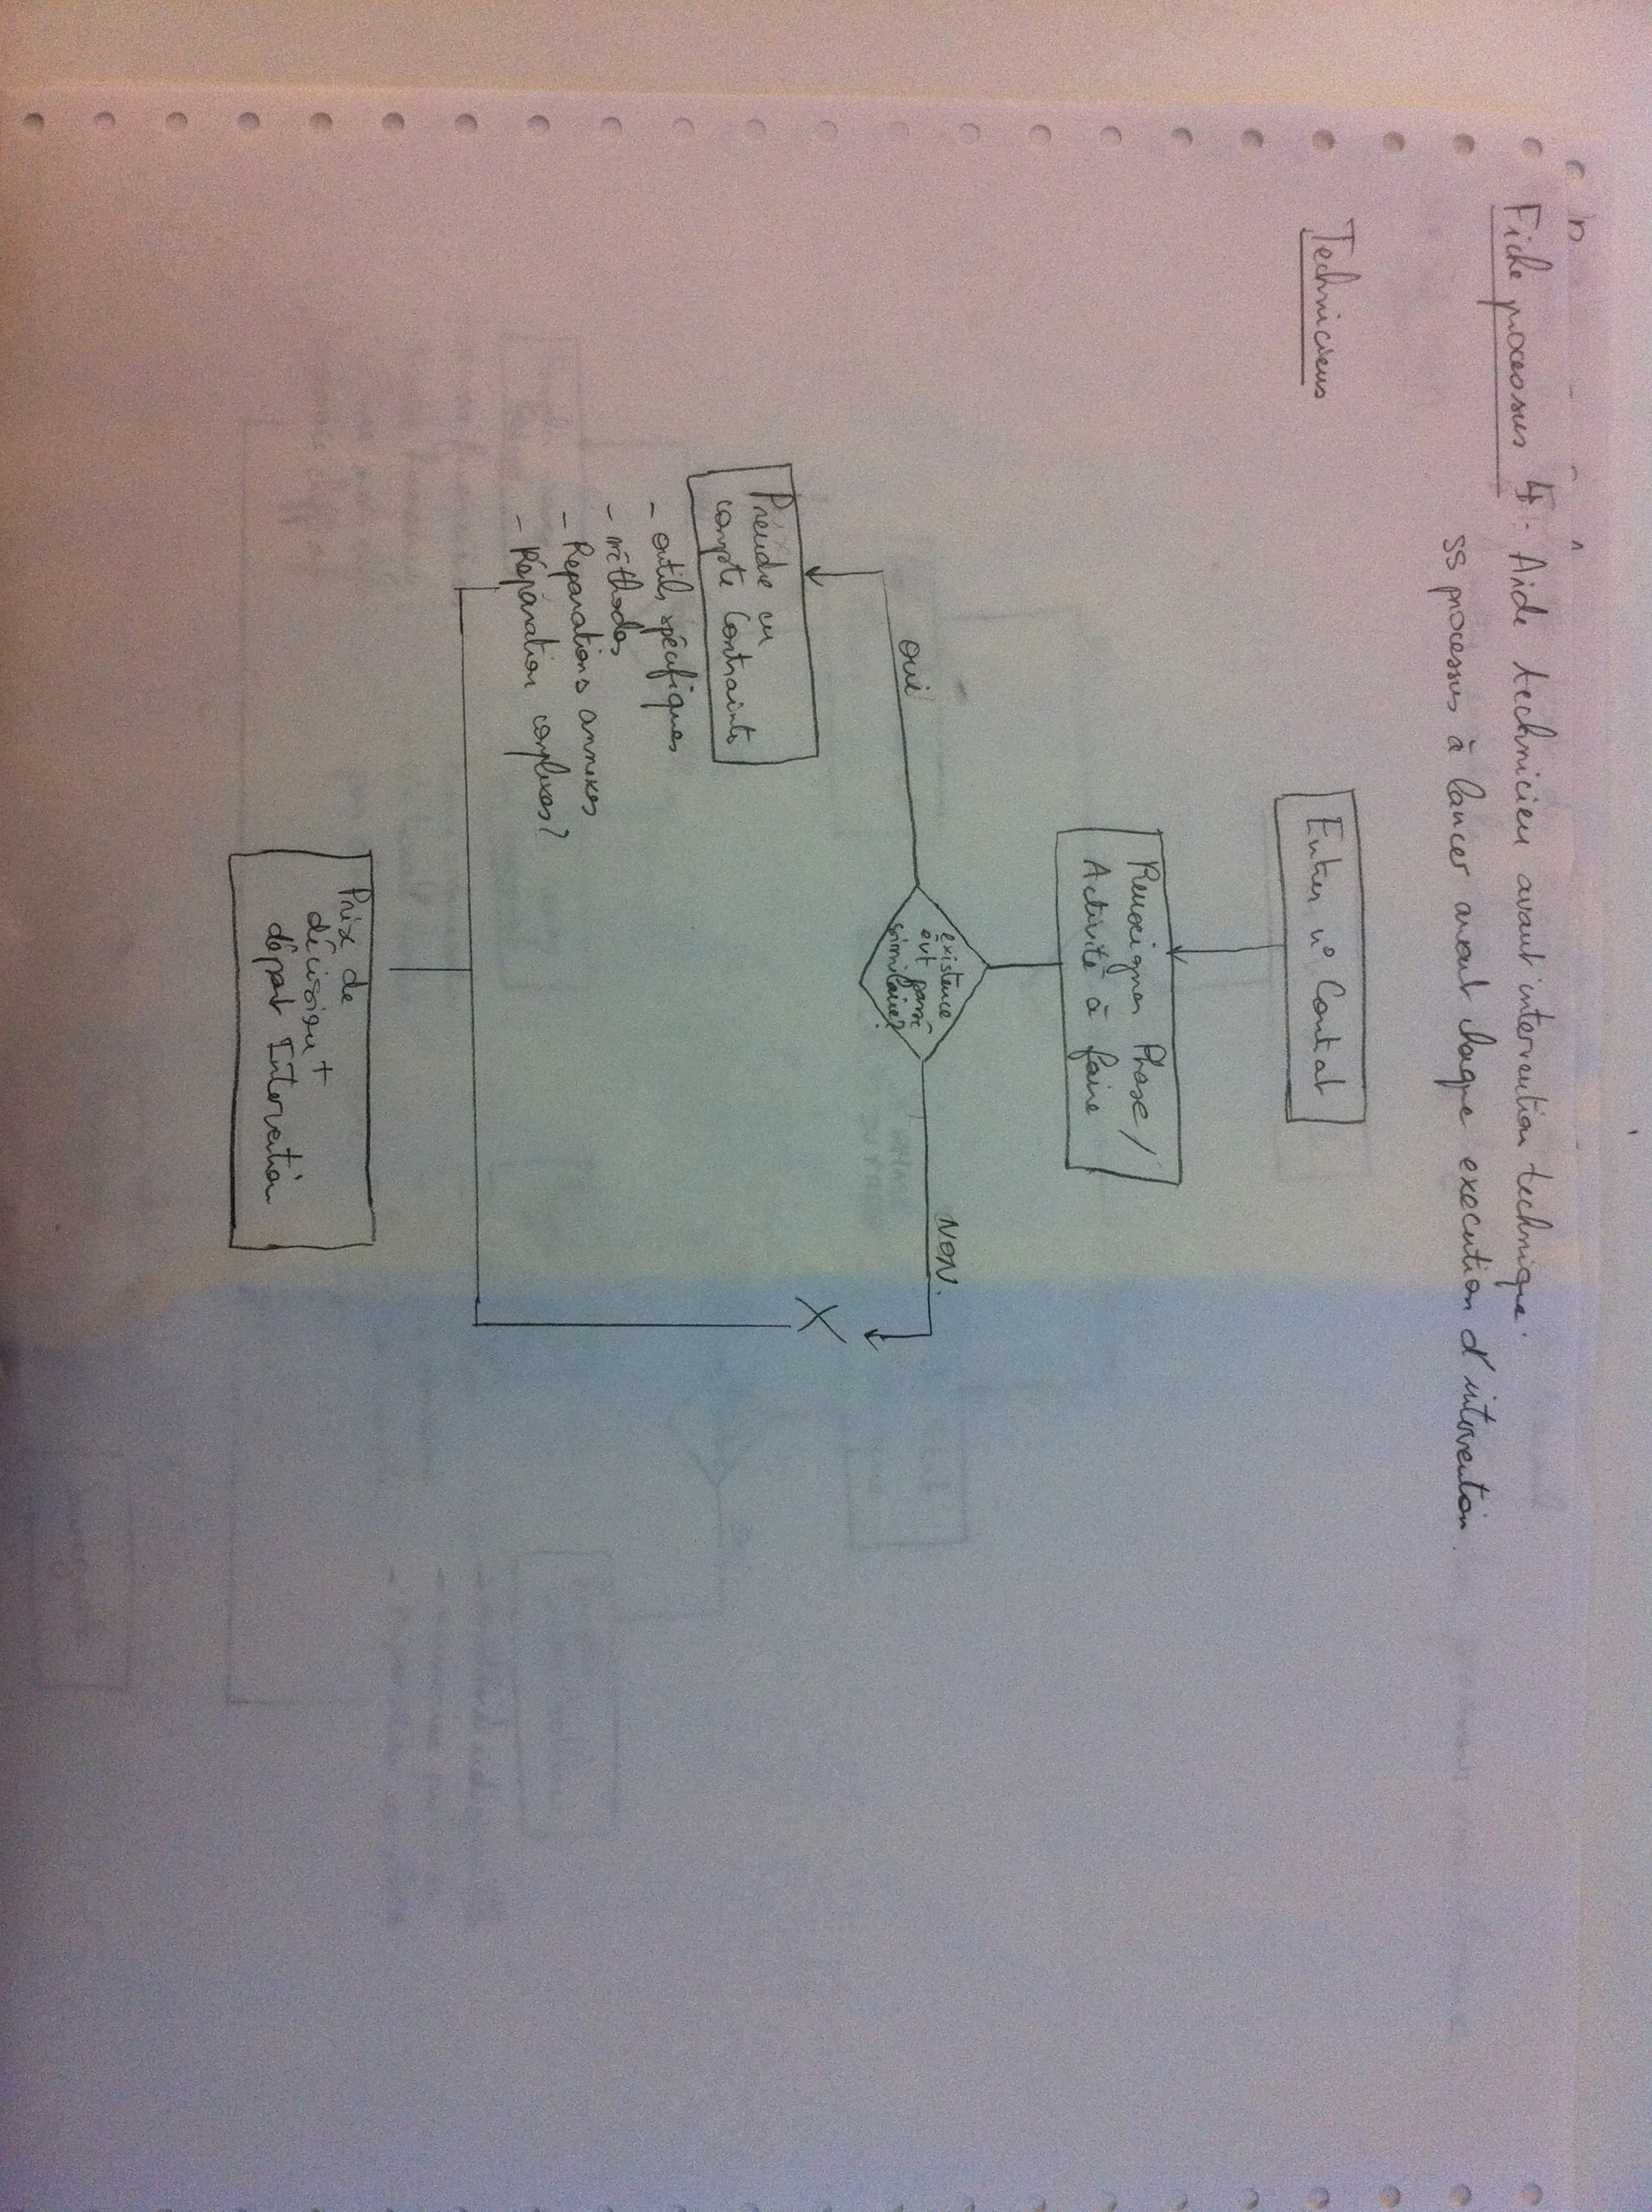 Fiche processus 4. Aide technicien avant intervention technique.
ss processus à lancer avant chaque execution d'intervention.
Techniciens
Entrer n° Contrat
Renseigner Phase /
Activité à faire
existence
évt passé
similaire?
OUI
NON.
Prendre en
compte Contraintes
- outils spécifiques
- méthodes
- Réparations annexes
- Réparation complexes?
X
Prix de
décision +
départ Intervention